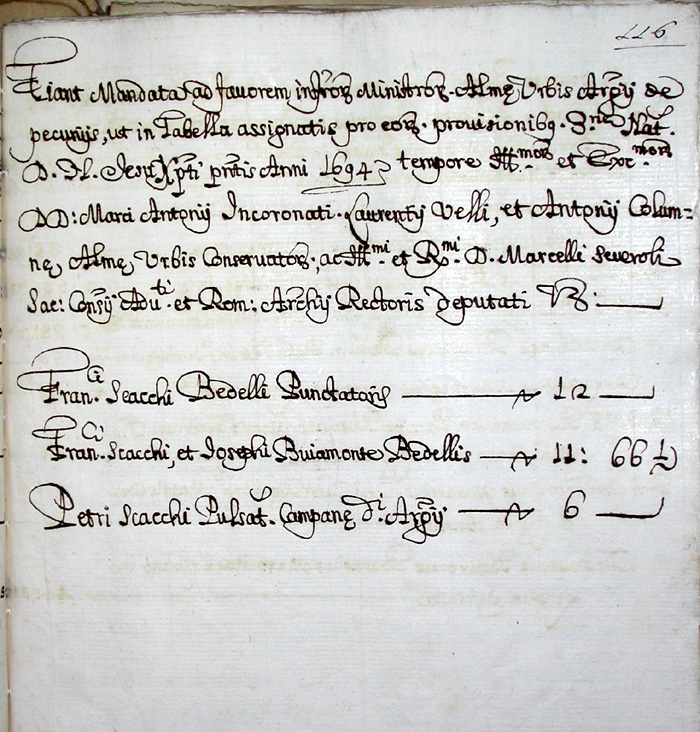 116
Fiant Mandata ad favorem infros Ministros Almę Urbis Archy de
pecunijs, ut in Tabella assignatis pro eor. provisionibq.
D. N. Jesu Xpti pntis Anni 1694 tempore Illmor et Exc.mor
DD: Marci Antonij Incoronati. Laurentij Velli, et Antonij Colum=
nę Almę Urbis Conservator., ac Ill.mi et R.mi D. Marcelli Severoli
Sac: Consry Adv.ti et Rom: Archij Rectoris deputati Vz:
Fran.ci Scacchi Bedelli Punctatoris 12
Fran.ci Scacchi, et Josephi Buiamonte Bedellis 11: 66 ½
Petri Scacchi Pulsat. Campanę d.i Archij 6